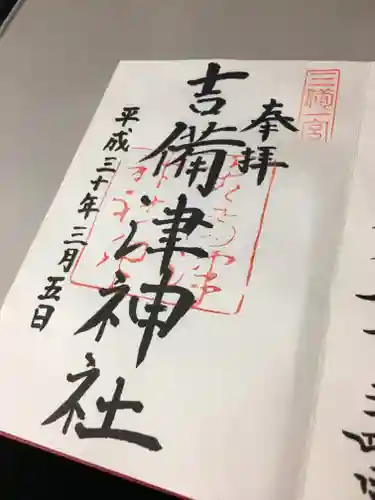 奉拝
吉備津神社
平成三十年三月五日